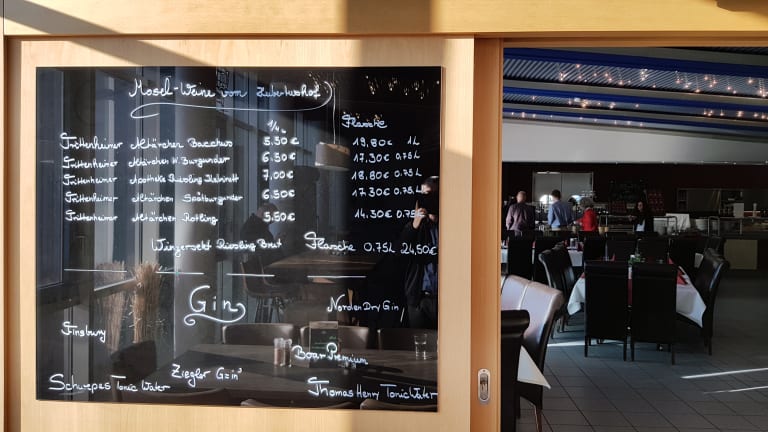 Mosel-Weine vom Hubertushof
1/4 L Flasche
Trittenheimer Altärchen Bacchus 5,50€ 19,80€ 1L
Trittenheimer Altärchen W. Burgunder 6,50€ 17,30€ 0,75L
Trittenheimer Apotheke Riesling Kabinett 7,00€ 18,80€ 0,75L
Trittenheimer Altärchen Spätburgunder 6,50€ 17,30€ 0,75L
Trittenheimer Altärchen Rotling 5,50€ 14,30€ 0,75L
Winzersekt Riesling Brut Flasche 0.75L 24,50€
Gin
Norden Dry Gin
Finsbury
Boar Premium
Ziegler G=in³
Schwepes Tonic Water
Thomas Henry Tonic Water